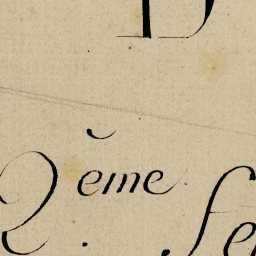 2 ĕme Se